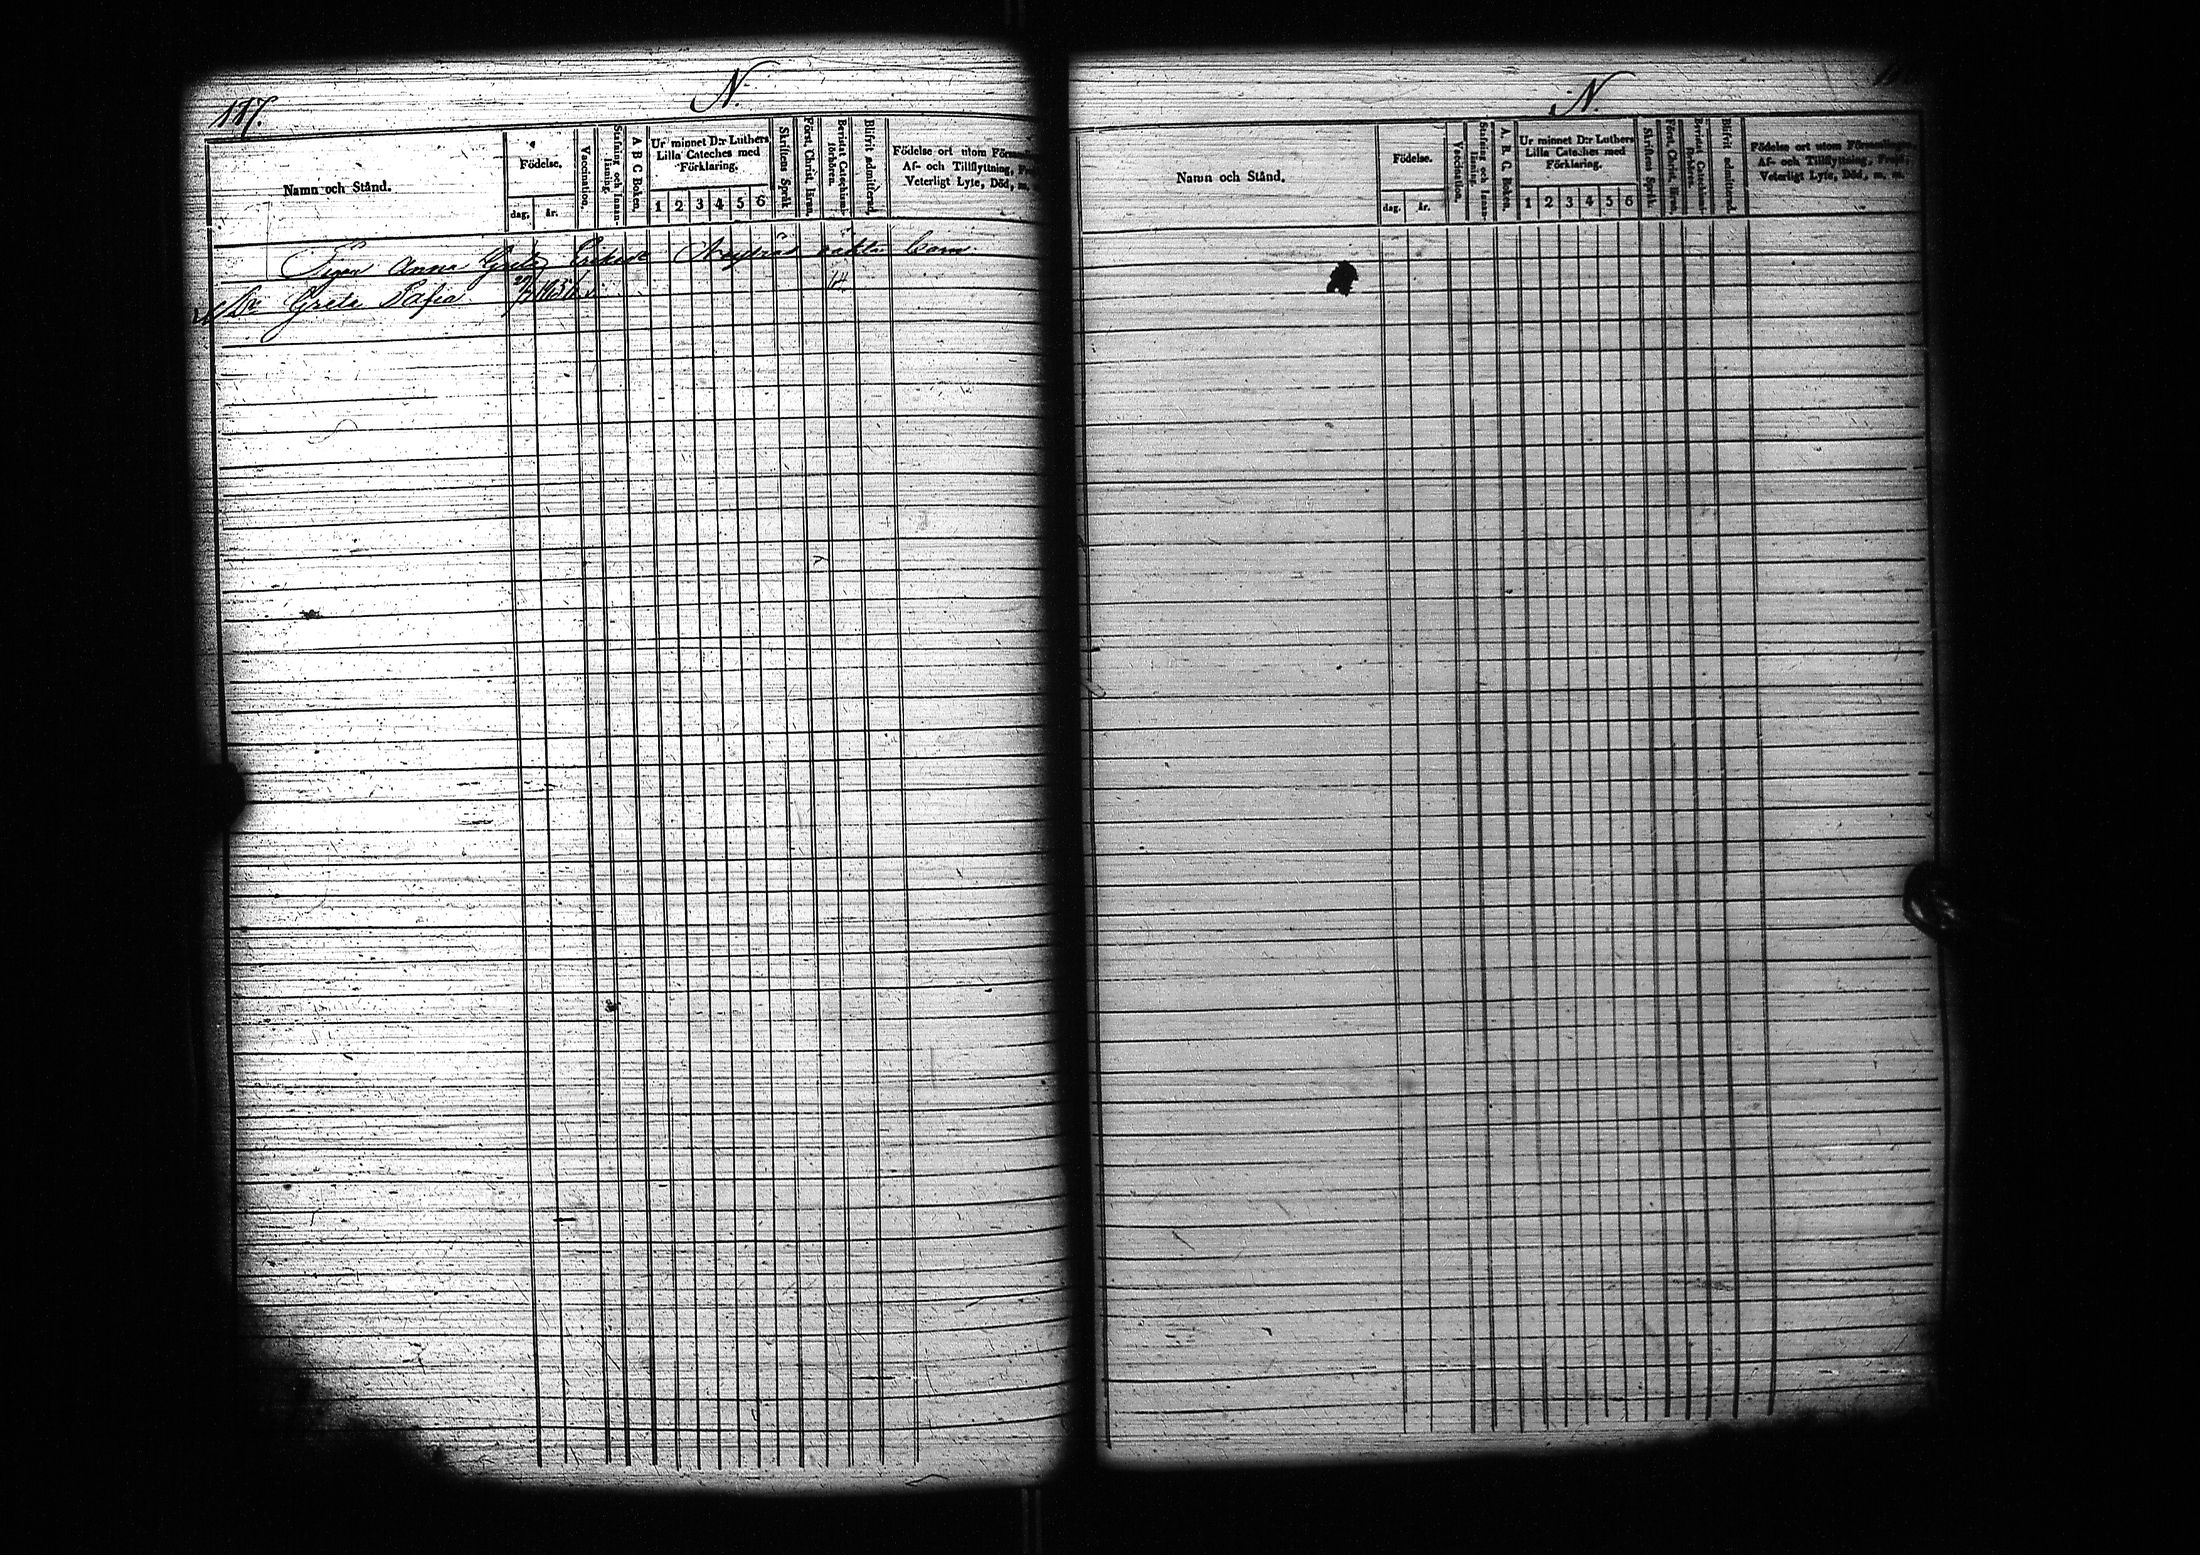 117.
N.
Namn och Stånd.
Födelse.
dag.
år.
Vaccination.
Stafning och Innan-läsning.
A B C Boken.
Ur minnet D:r Luthers
Lilla Cateches med
Förklaring.
1 2 3 4 5 6
Skriftens Språk
Först. Christ. läran.
Bevistat Catechismi-förhören.
Blifvit admitterad.
Födelse ort utom
Af- och Tillflyttning,
Veterligt Lyte, Död, m.
Pigan Anna Greta barn
Dr Greta Sofia
N.
Namn och Stånd.
Födelse.
dag.
år.
Vaccination.
Stafning och Innan-läsning.
A. B. C. Boken.
Ur minnet D:r Luthers
Lilla Cateches med
Förklaring.
1 2 3 4 5 6
Skriftens Språk
Först. Christ. läran.
Bevistat Catechismi-förhören.
Blifvit admitterad.
Födelse ort utom Församlingen,
Af- och Tillflyttning, Frejd,
Veterligt Lyte, Död, m. m.